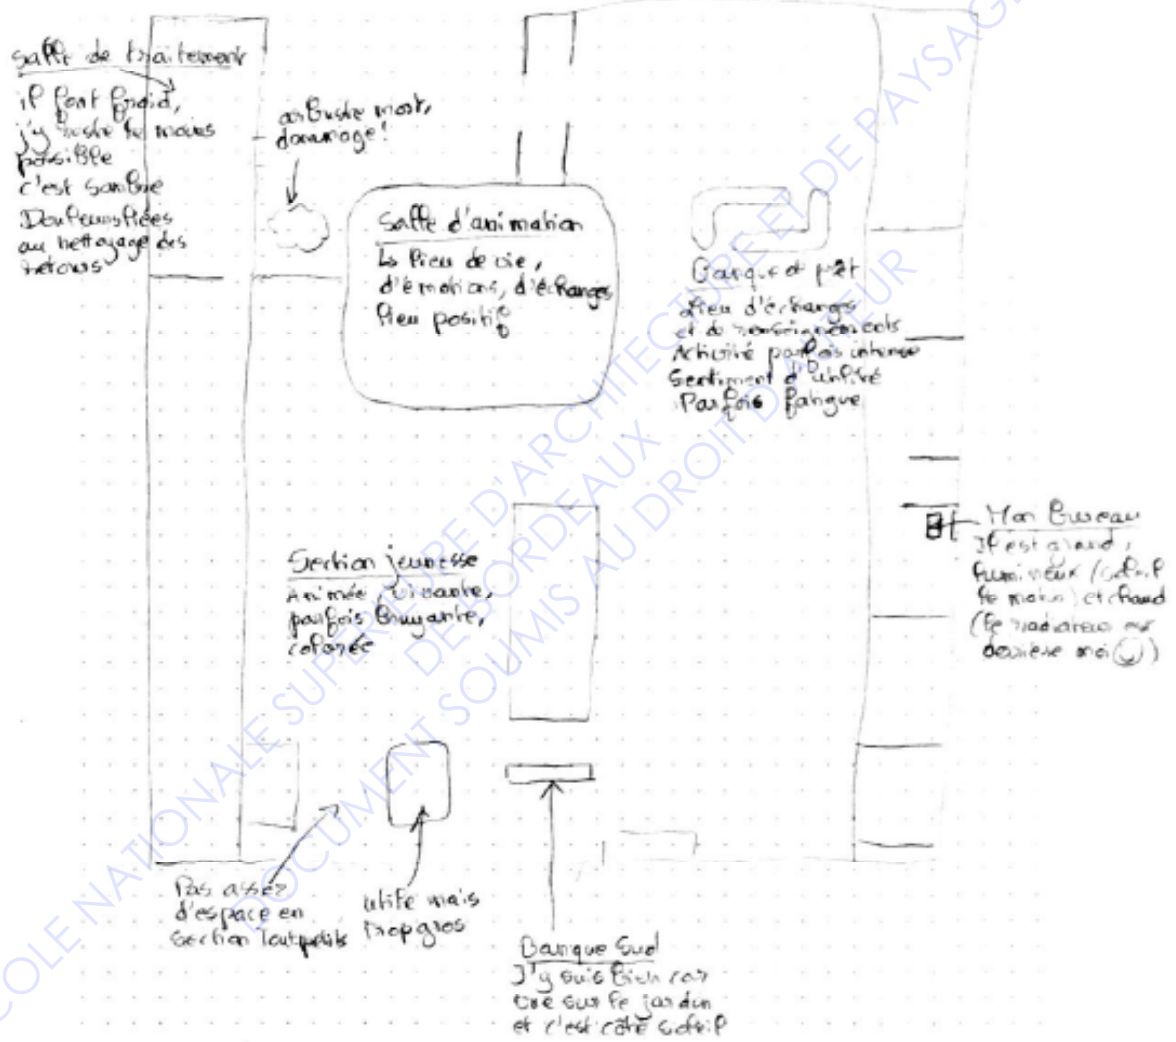 Salle de traitement
il fait froid,
j'y reste le moins
possible
c'est sombre
Douleurs liées
au nettoyage des
retours
arbuste mort,
dommage!
Salle d'animation
Lieu de vie,
d'émotions, d'échanges
lieu positif
Banque et prêt
Lieu d'échanges
et de renseignements
Activité parfois intense
Sentiment d'utilité
Parfois fatigue
Mon Bureau
Il est grand,
lumineux (soleil
le matin) et chaud
(le radiateur est
derrière moi)
Section jeunesse
Animée, vivante,
parfois bruyante,
colorée
Pas assez
d'espace en
section toutpetits
utile mais
trop gros
Banque Sud
J'y suis bien car
vue sur le jardin
et c'est côté soleil
ECOLE NATIONALE SUPERIEURE D'ARCHITECTURE ET DE PAYSAGE
DE BORDEAUX
DOCUMENT SOUMIS AU DROIT D'AUTEUR